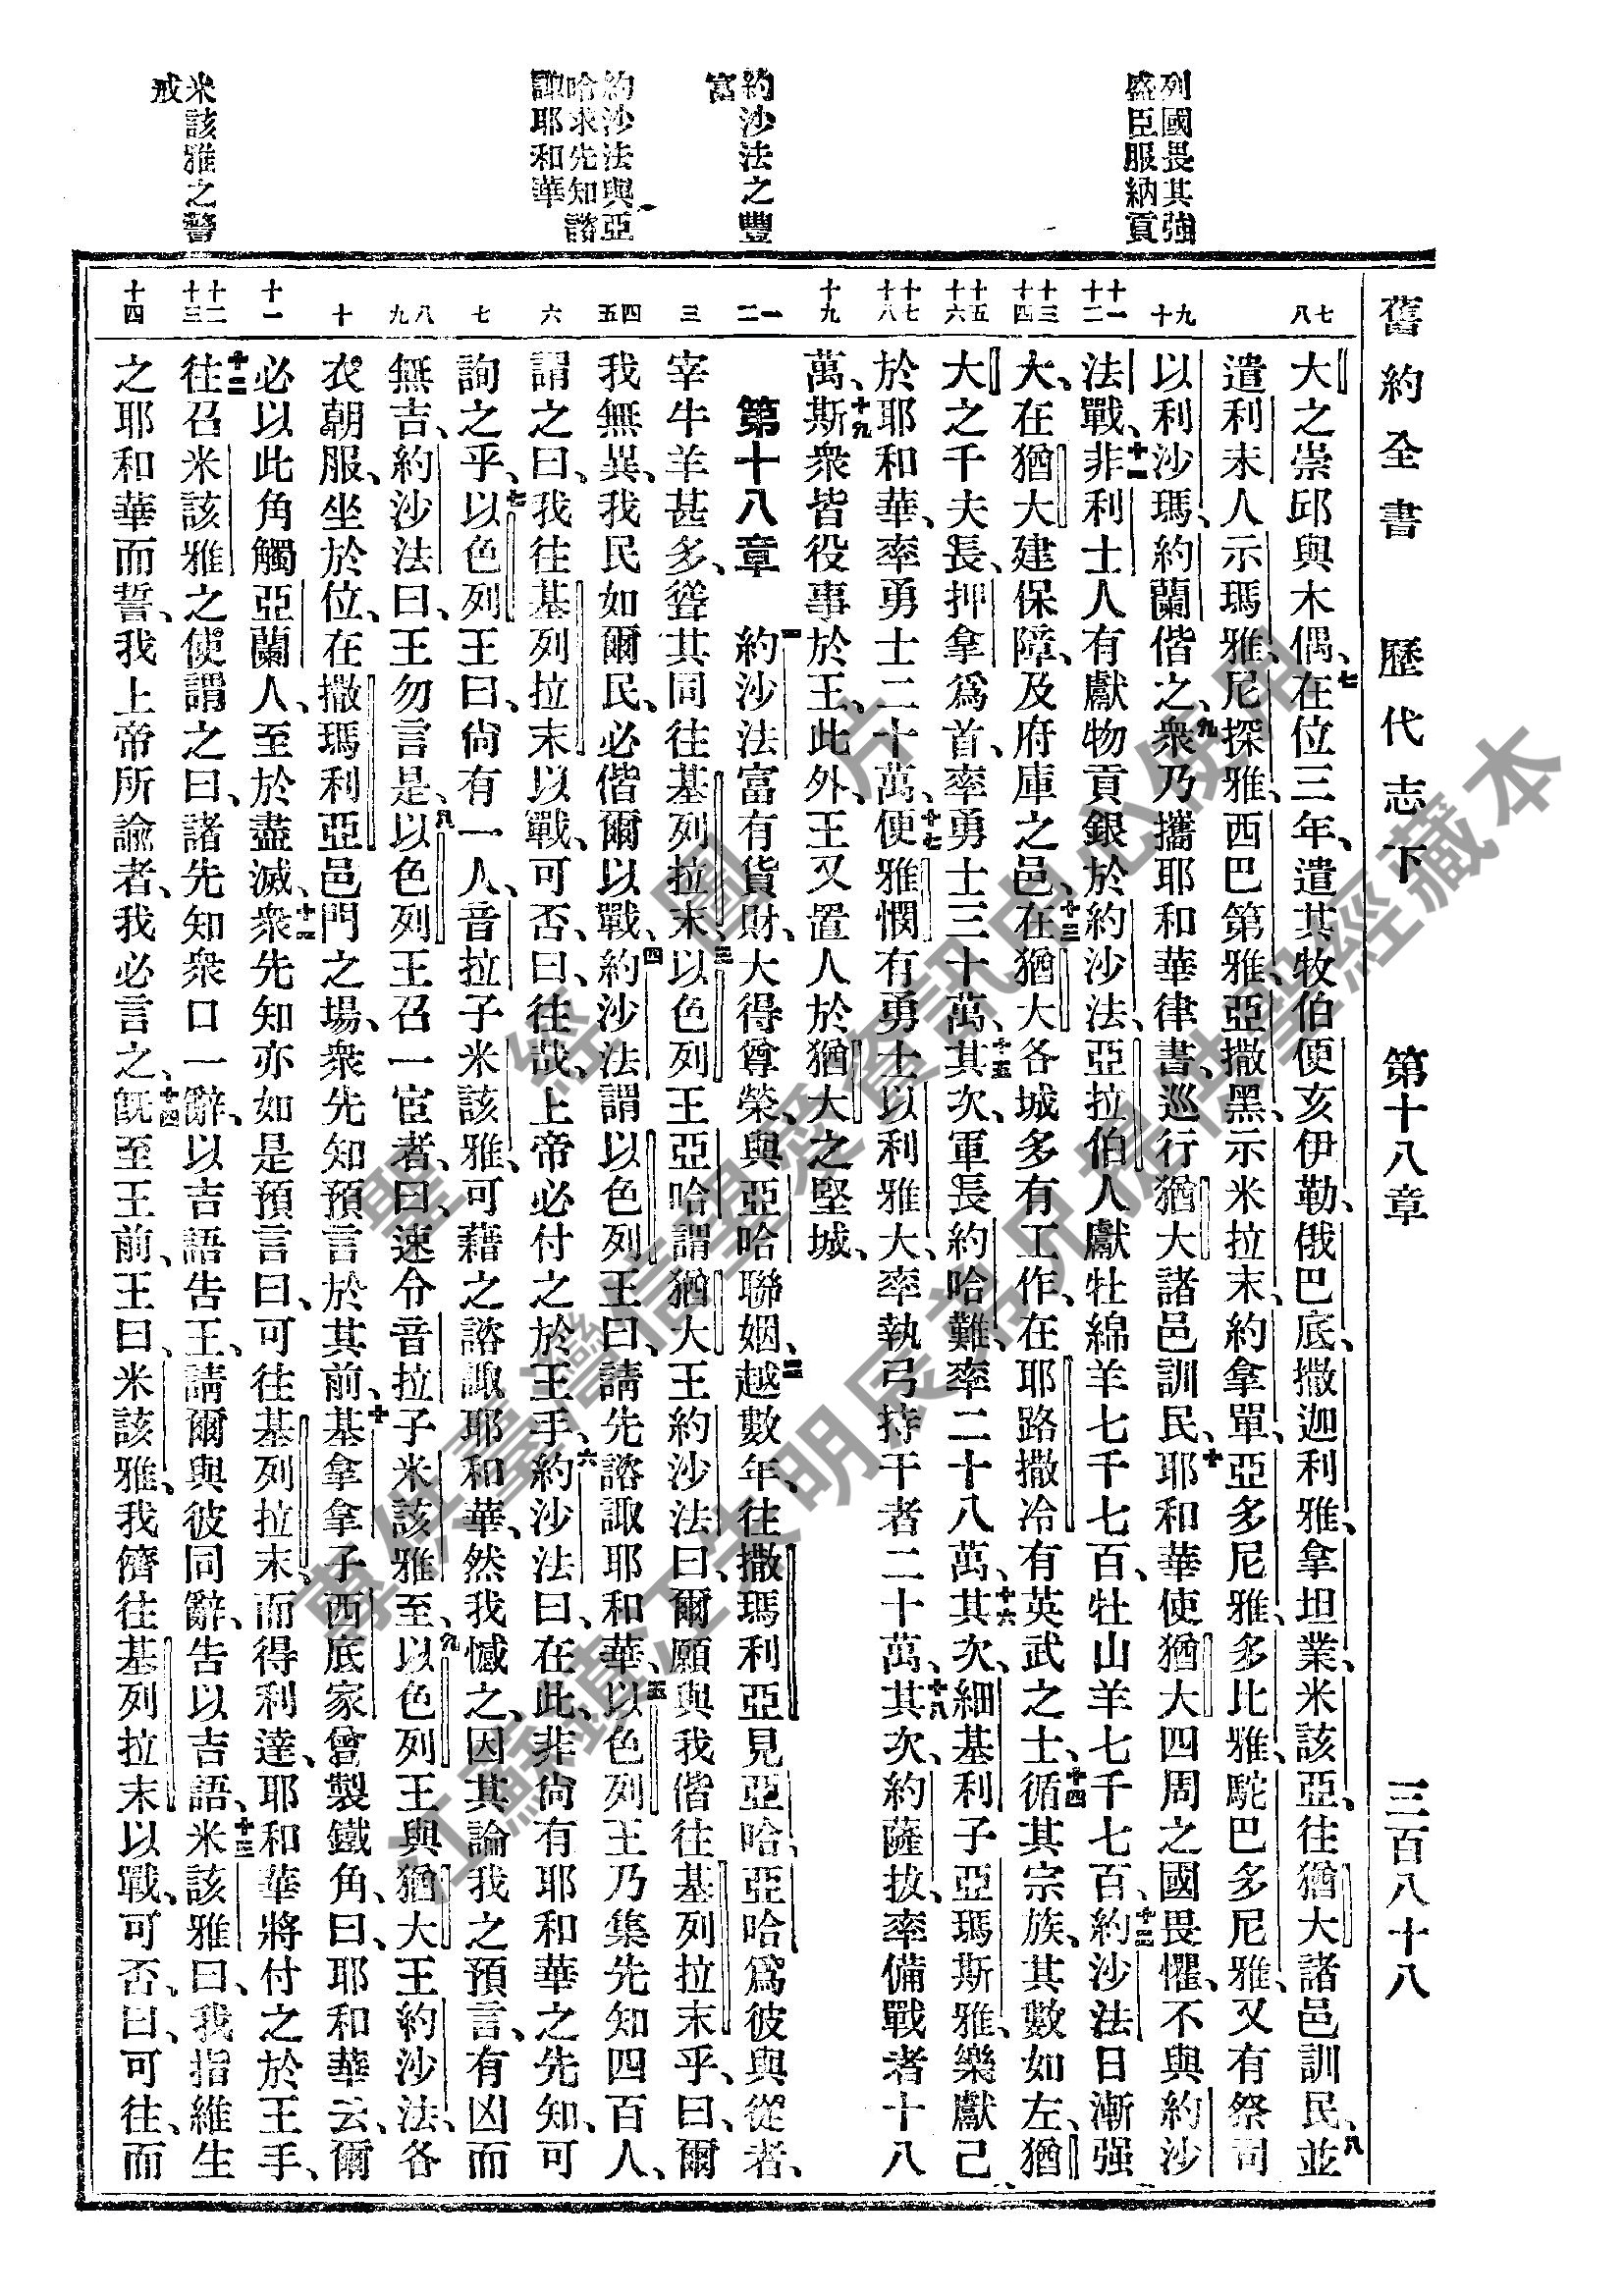 列國畏其強
盛臣服納貢
約沙法之豐
富
約沙法與亞
哈求先知諮
諏耶和華
米該雅之警
戒
舊約全書 歷代志下 第十八章 三百八十八
七 八
九 十
十一 十二
十三 十四
十五 十六
十七 十八
十九
一 二
三
四 五
六
七
八 九
十
十一
十二 十三
十四
大之崇邱與木偶、七在位三年、遣其牧伯便亥伊勒、俄巴底、撒迦利雅、拿坦業、米該亞、往猶大諸邑訓民、八並
遣利未人示瑪雅、尼探雅、西巴第雅、亞撒黑、示米拉末、約拿單、亞多尼雅、多比雅、駝巴多尼雅、又有祭司
以利沙瑪、約蘭偕之、九衆乃攜耶和華律書、巡行猶大諸邑訓民、十耶和華使猶大四周之國畏懼、不與約沙
法戰、十一非利士人有獻物貢銀於約沙法、亞拉伯人獻牡綿羊七千七百、牡山羊七千七百、十二約沙法日漸强
大、在猶大建保障、及府庫之邑、十三在猶大各城多有工作、在耶路撒冷有英武之士、十四循其宗族、其數如左、猶
大之千夫長、押拿爲首、率勇士三十萬、十五其次、軍長約哈難、率二十八萬、十六其次、細基利子亞瑪斯雅、樂獻己、
於耶和華、率勇士二十萬、十七便雅憫有勇士以利雅大、率執弓持干者二十萬、十八其次、約薩拔、率備戰者十八
萬、十九斯衆皆役事於王、此外、王又置人於猶大之堅城、
第十八章 一約沙法富有貨財、大得尊榮、與亞哈聯姻、二越數年、往撒瑪利亞見亞哈、亞哈爲彼與從者、
宰牛羊甚多、聳其同往基列拉末、三以色列王亞哈謂猶大王約沙法曰、爾願與我偕往基列拉末乎、曰、爾
我無異、我民如爾民、必偕爾以戰、四約沙法謂以色列王曰、請先諮諏耶和華、五以色列王乃集先知四百人、
謂之曰、我往基列拉末以戰、可否、曰、往哉、上帝必付之於王手、六約沙法曰、在此、非尙有耶和華之先知、可
詢之乎、七以色列王曰、尙有一人、音拉子米該雅、可藉之諮諏耶和華、然我憾之、因其論我之預言、有凶而
無吉、約沙法曰、王勿言是、八以色列王召一宦者、曰、速令音拉子米該雅至、九以色列王與猶大王約沙法、各
衣朝服、坐於位、在撒瑪利亞邑門之場、衆先知預言於其前、十基拿拿子西底家曾製鐵角、曰、耶和華云、爾
必以此角觸亞蘭人、至於盡滅、十一衆先知亦如是預言曰、可往基列拉末、而得利達、耶和華將付之於王手、
十二往召米該雅之使謂之曰、諸先知衆口一辭、以吉語告王、請爾與彼同辭、告以吉語、十三米該雅曰、我指維生
之耶和華而誓、我上帝所諭者、我必言之、十四旣至王前、王曰、米該雅、我儕往基列拉末以戰、可否、曰、可往、而
聖經圖片
專供臺灣信望愛資訊中心使用
江蘇鎮江朱明辰弟兄提供聖經藏本